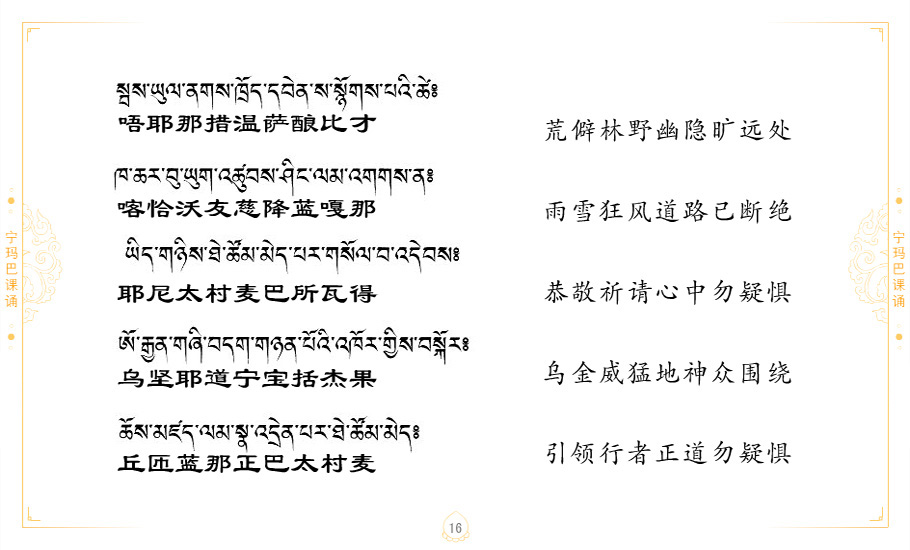 སྦས་ཡུལ་ནགས་ཁྲོད་དབེན་ས་སྙོགས་པའི་ཚེ༔
唔耶那措温萨酿比才
荒僻林野幽隐旷远处
ཁ་ཆར་བུ་ཡུག་འཚུབས་ཤིང་ལམ་འགགས་ན༔
喀恰沃友慈降蓝嘎那
雨雪狂风道路已断绝
ཡིད་གཉིས་ཐེ་ཚོམ་མེད་པར་གསོལ་བ་འདེབས༔
耶尼太村麦巴所瓦得
恭敬祈请心中勿疑惧
ཨོ་རྒྱན་གཞི་བདག་གཉན་པོའི་འཁོར་གྱིས་བསྐོར༔
乌坚耶道宁宝括杰果
乌金威猛地神众围绕
ཆོས་མཛད་ལམ་སྣ་འདྲེན་པར་ཐེ་ཚོམ་མེད༔
丘匝蓝那正巴太村麦
引领行者正道勿疑惧
宁玛巴课诵
宁玛巴课诵
16